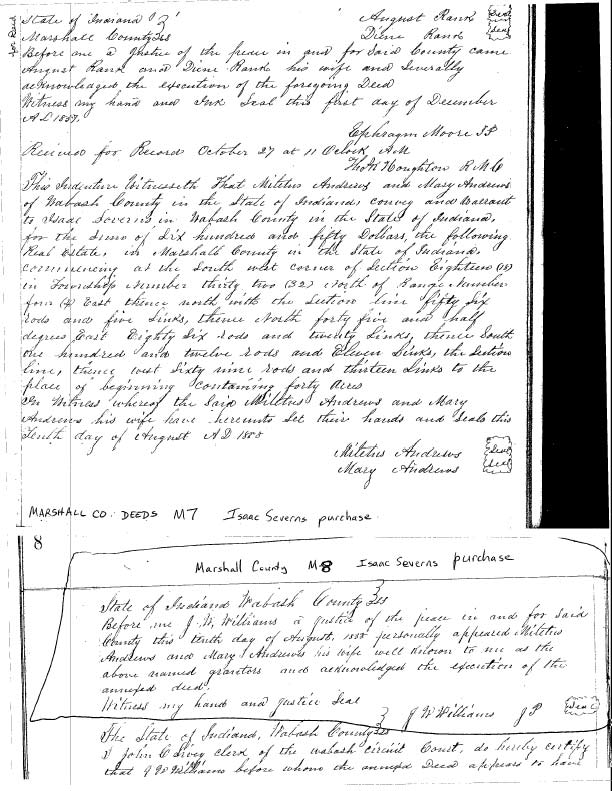 State of Indiana } August Rank Seal
Marshall County } SS Diene Rank Seal
for Record
Before me a Justice of the peace in and for Said County came
August Rank and Diene Rank his wife and Severally
acknowledged the execution of the foregoing Deed
Witness my hand and Ink Seal this first day of December
A D 1857.
Ephragm Moore JP
Received for Record October 27 at 11 OClock AM
Thos H Houghton R M C
This Indenture Witnesseth That Miletus Andrews and Mary Andrews
of Wabash County in the State of Indiana, convey and Warrant
to Isaac Severns in Wabash County in the State of Indiana,
for the Sum of Six hundred and fifty Dollars, the following
Real Estate, in Marshall County in the State of Indiana,
commencing at the South west corner of Section Eighteen (18)
in Township Number thirty two (32) North of Range Number
four (4) East thence north with the Section line fifty Six
rods and five Links, thence North forty five and half
degrees East Eighty Six rods and twenty Links, thence South
one hundred and twelve rods and Eleven Links, the Section
line, thence west Sixty nine rods and thirteen Links to the
place of beginning containing forty acres
In Witness whereof the Said Miletus Andrews and Mary
Andrews his wife have hereunto Set their hands and Seals this
Tenth day of August A D 1858
Miletus Andrews Seal
Mary Andrews Seal
MARSHALL CO. DEEDS M7 Isaac Severns purchase
8
Marshall County M8 Isaac Severns purchase
State of Indiana Wabash County } SS
Before me J. W. Williams a justice of the peace in and for said
County this tenth day of August, personally appeared Miletus
Andrews and Mary Andrews his wife well known to me as the
above named grantors and acknowledged the execution of the
annexed deed.
Witness my hand and justice Seal
J W Williams JP Seal
The State of Indiana, Wabash County } SS
I John C Sivey clerk of the wabash circuit Court, do hereby certify
that J W Williams before whom the annexed Deed appears to have